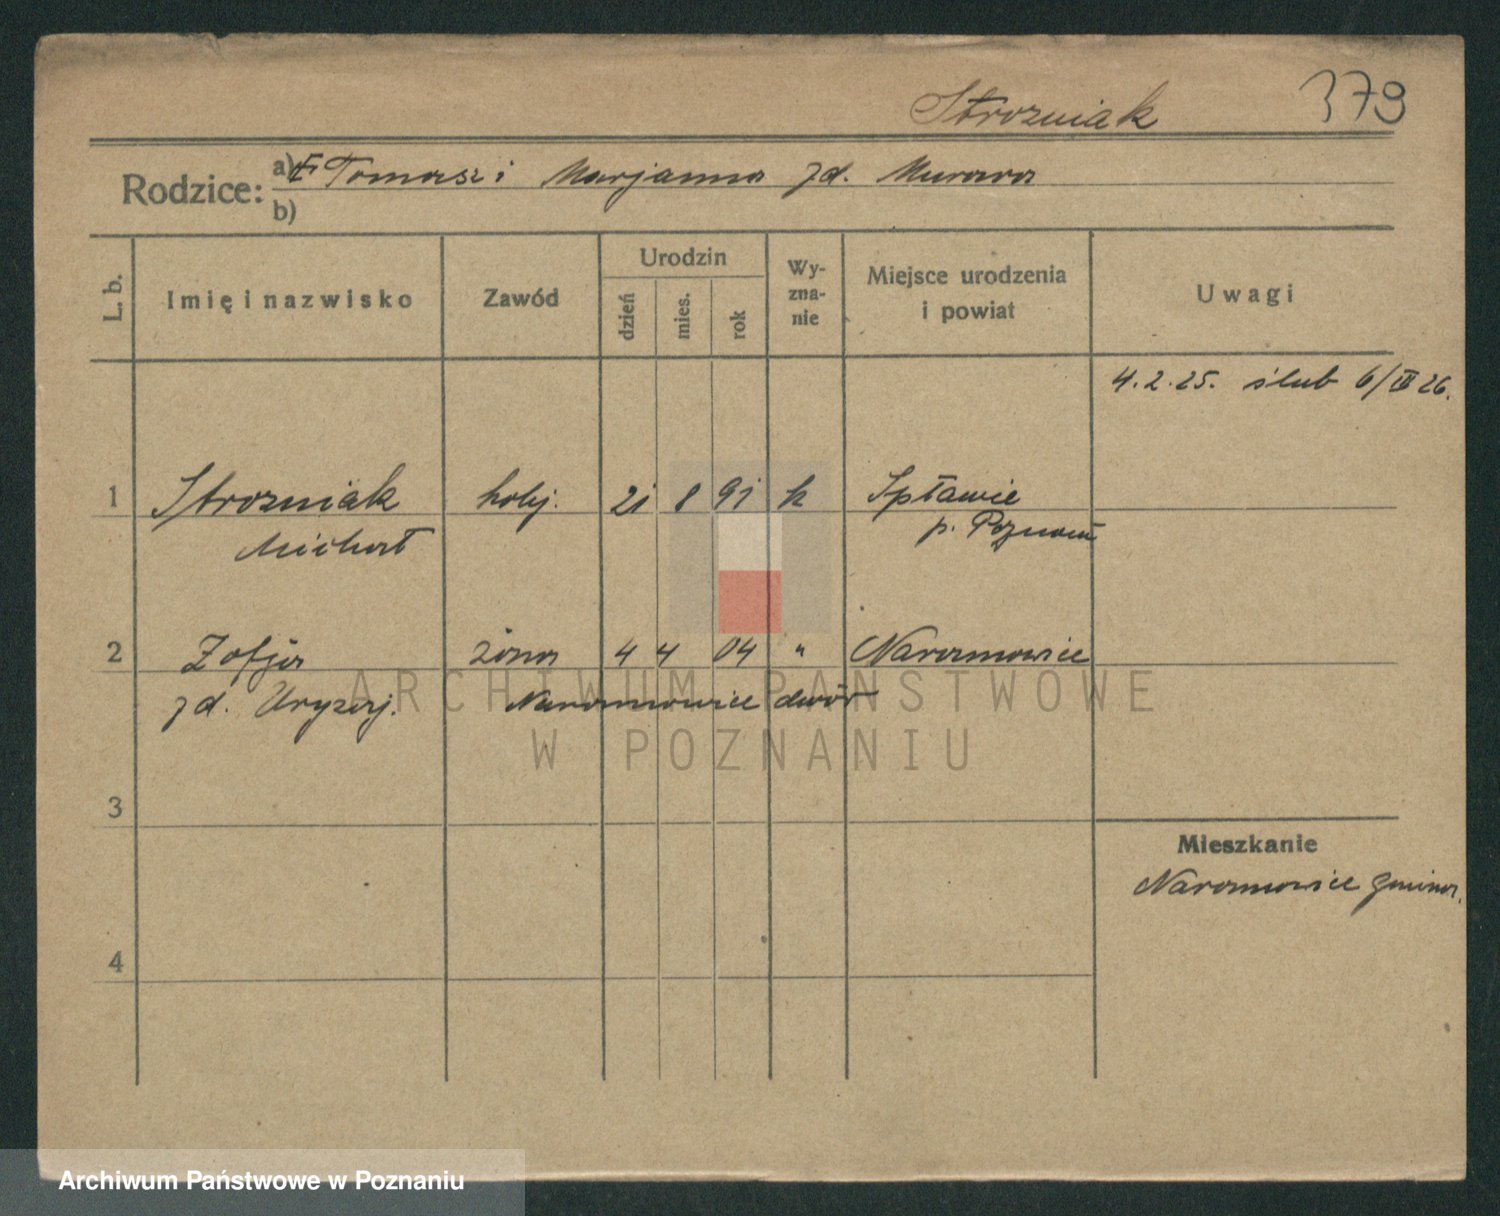 Strozniak 379
Rodzice: a) Tomasz i Marjanna zd. Murawa
b)
L. b. Imię i nazwisko Zawód Urodzin dzień mies. rok Wy-zna-nie Miejsce urodzenia i powiat Uwagi
4.2.25. ślub 6/III 26.
1 Strozniak kolej. 21 8 91 k Spławie
Michał p. Poznań
2 Zofja żona 4 4 04 " Naramowice
zd. Naramowice dwór
ARCHIWUM PAŃSTWOWE
W POZNANIU
3
Mieszkanie
Naramowice gmina.
4
Archiwum Państwowe w Poznaniu